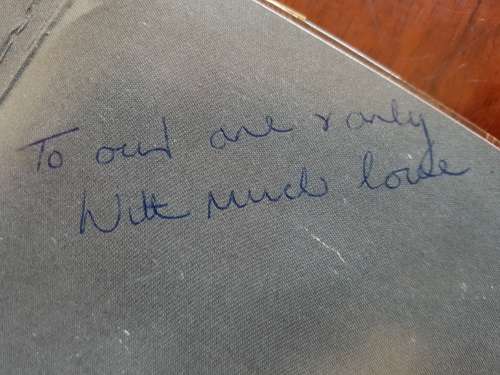 To our one & only
With much love